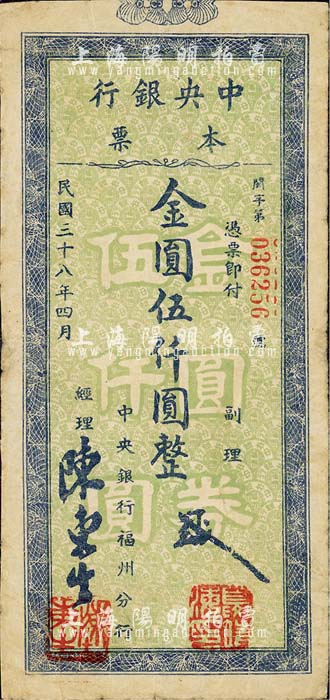 中央銀行
本票
閩字第036256號
憑票即付
金圓伍仟圓整
副理
中央銀行福州分行
經理
民國三十八年四月
金圓券
伍仟圓
上海陽明拍賣
www.yangmingauction.com
上海陽明拍賣
www.yangmingauction.com
上海陽明拍賣
www.yangmingauction.com